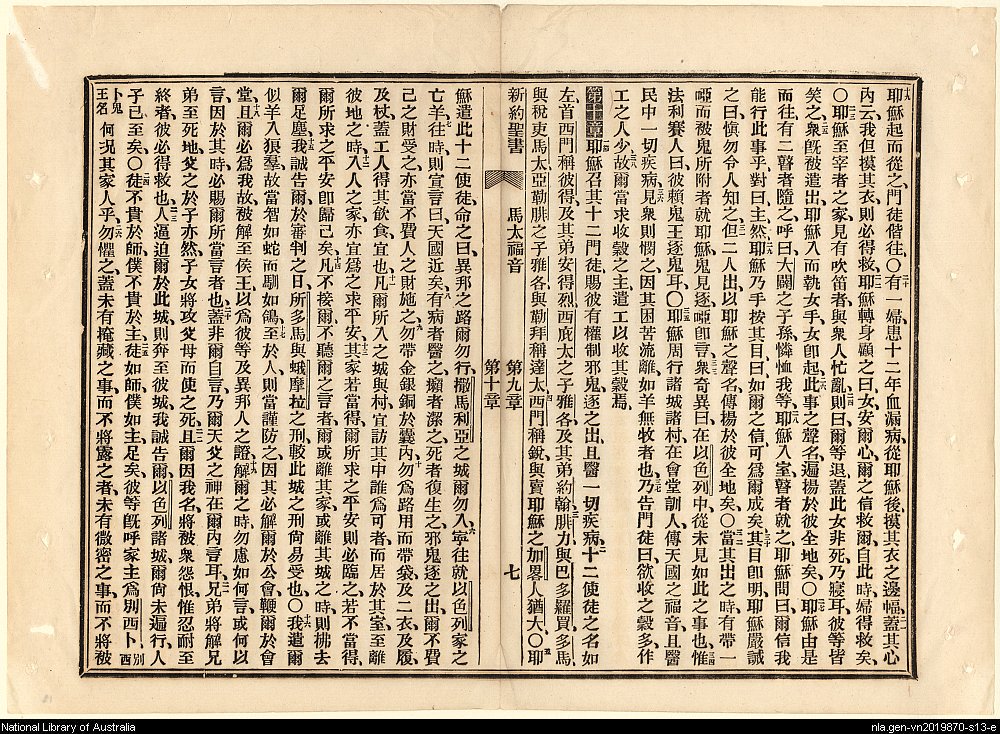 耶穌起而從之門徒偕往、〇有一婦患十二年血漏病從耶穌後摸其衣之邊幅蓋其心
內云我但摸其衣則必得救、耶穌轉身顧之曰女安爾心爾之信救爾、自此時婦得救矣、
〇耶穌至宰者之家見有吹笛者與衆人忙亂則曰爾等退蓋此女非死乃寢耳、彼等皆
笑之、衆旣被遣出耶穌入而執女手女卽起此事之聲名遍揚於彼全地矣、〇耶穌由是
而往有二瞽者隨之呼曰大闢之子孫憐恤我等、耶穌入室瞽者就之耶穌問曰爾信我
能行此事乎對曰主然耶穌乃手按其目曰如爾之信可爲爾成矣其目卽明耶穌嚴誡
之曰愼勿令人知之、但二人出以耶穌之聲名傳揚於彼全地矣、〇當其出之時有帶一
啞而被鬼所附者就耶穌鬼見逐啞卽言衆奇異曰在以色列中從未見如此之事也惟
法利賽人曰彼賴鬼王逐鬼耳〇耶穌周行諸城諸村在會堂訓人傳天國之福音且醫
民中一切疾病見衆則憫之因其困苦流離如羊無牧者也、乃告門徒曰欲收之穀多作
工之人少故爾當求收穀之主遣工以收其穀焉
第十章耶穌召其十二門徒賜彼有權制邪鬼逐之出且醫一切疾病十二使徒之名如
左首西門稱彼得及其弟安得烈西庇太之子雅各及其弟約翰腓力與巴多羅買多馬
與稅吏馬太亞勒腓之子雅各與勒拜稱達太西門稱銳與賣耶穌之加畧人猶大〇耶
新約聖書 馬太福音 第九章 第十章 七
穌遣此十二使徒命之曰異邦之路爾勿行撒馬利亞之城爾勿入寧往就以色列家之
亡羊往時則宣言曰天國近矣有病者醫之癩者潔之死者復生之邪鬼逐之出爾不費
己之財受之亦當不費人之財施之勿帶金銀銅於囊內勿爲路用而帶袋及二衣及履
及杖蓋工人得其飲食宜也凡爾所入之城與村宜訪其中誰爲可者而居於其室至離
彼地之時入人之家亦宜爲之求平安其家若當得爾所求之平安則必臨之若不當得
爾所求之平安卽歸己矣凡不接爾不聽爾之言者爾或離其家或離其城之時則拂去
爾足塵我誠告爾於審判之日所多馬與蛾摩拉之刑較此城之刑尙易受也〇我遣爾
似羊入狼羣故當智如蛇而馴如鴿至於人則當謹防之因其必解爾於公會鞭爾於會
堂且爾必爲我故被解至侯王以爲彼等及異邦人之證解爾之時勿慮如何言或何以
言因於其時必賜爾所當言者也蓋非爾自言乃爾天父之神在爾內言耳兄弟將解兄
弟至死地父之於子亦然子女將攻父母而使之死且爾因我名將被衆怨恨惟忍耐至
終者彼必得救也人逼迫爾於此城則奔至彼城我誠告爾以色列諸城爾尙未遍行人
子已至矣〇徒不貴於師僕不貴於主徒如師僕如主足矣彼等旣呼家主爲別西卜別西
卜鬼王名何況其家人乎勿懼之蓋未有掩藏之事而不將露之者未有微密之事而不將被
National Library of Australia
nla.gen-vn2019870-s13-e